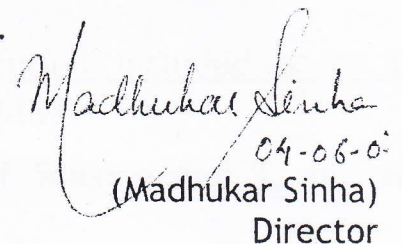 Madhukar Sinha
04-06-0
(Madhukar Sinha)
Director